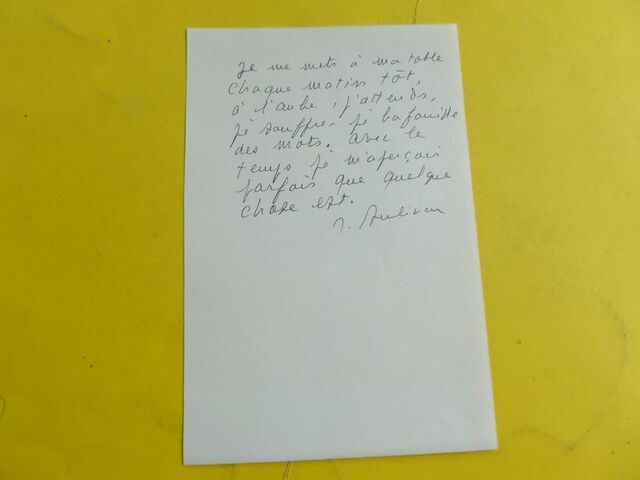 Je me mets à ma table
chaque matin tôt,
à l'aube, j'attends,
je souffre, je bafouille
des mots. Avec le
temps je m'aperçois
parfois que quelque
chose est.
J. Sulivan